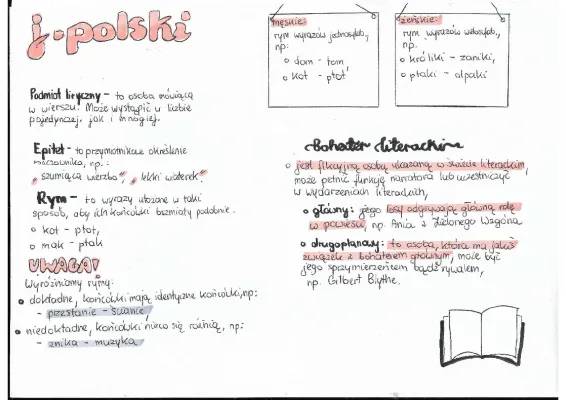 j. polski
Podmiot liryczny – to osoba mówiąca
w wierszu. Może wystąpić w liczbie
pojedynczej, jak i mnogiej.
Epitet – to przymiotnikowe określenie
rzeczownika, np.:
"szumiąca wierzba", "lekki wiaterek"
Rym – to wyrazy ułożone w taki
sposób, aby ich końcówki brzmiały podobnie.
kot – płot,
mak – ptak
UWAGA!
Wyróżniamy rymy:
dokładne, końcówki mają identyczne końcówki, np:
niedokładne, końcówki nieco się różnią, np:
– znika – muzyka
męskie:
rym wyrazów jednosylab.,
np:
dom – tom,
kot – płot,
żeńskie:
rym wyrazów wielosylab.,
np.
króliki – zaniki,
ptaki – alpaki
Bohater literacki
jest fikcyjną osobą ukazaną w świecie literackim,
może pełnić funkcję narratora lub uczestniczyć
w wydarzeniach literackich,
główny: jego losy odgrywają główną rolę
w powieści, np. Ania z Zielonego Wzgórza
drugoplanowy: to osoba, która ma jakiś
związek z bohaterem głównym, może być
jego sprzymierzeńcem bądź rywalem,
np. Gilbert Blythe.